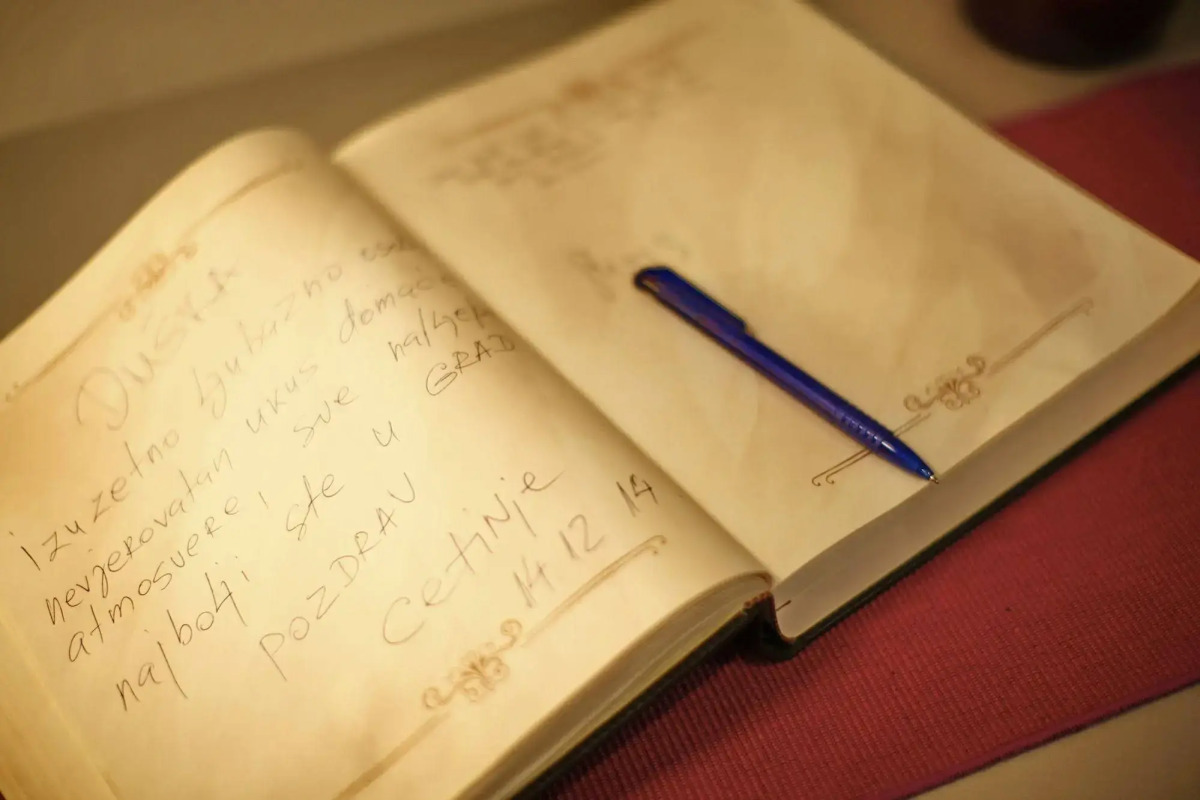 DUŠKA
izuzetno ljubazno
nevjerovatan ukus
atmosvere, sve
najbolji ste u GRAD
POZDRAV
Cetinje
14.12 14